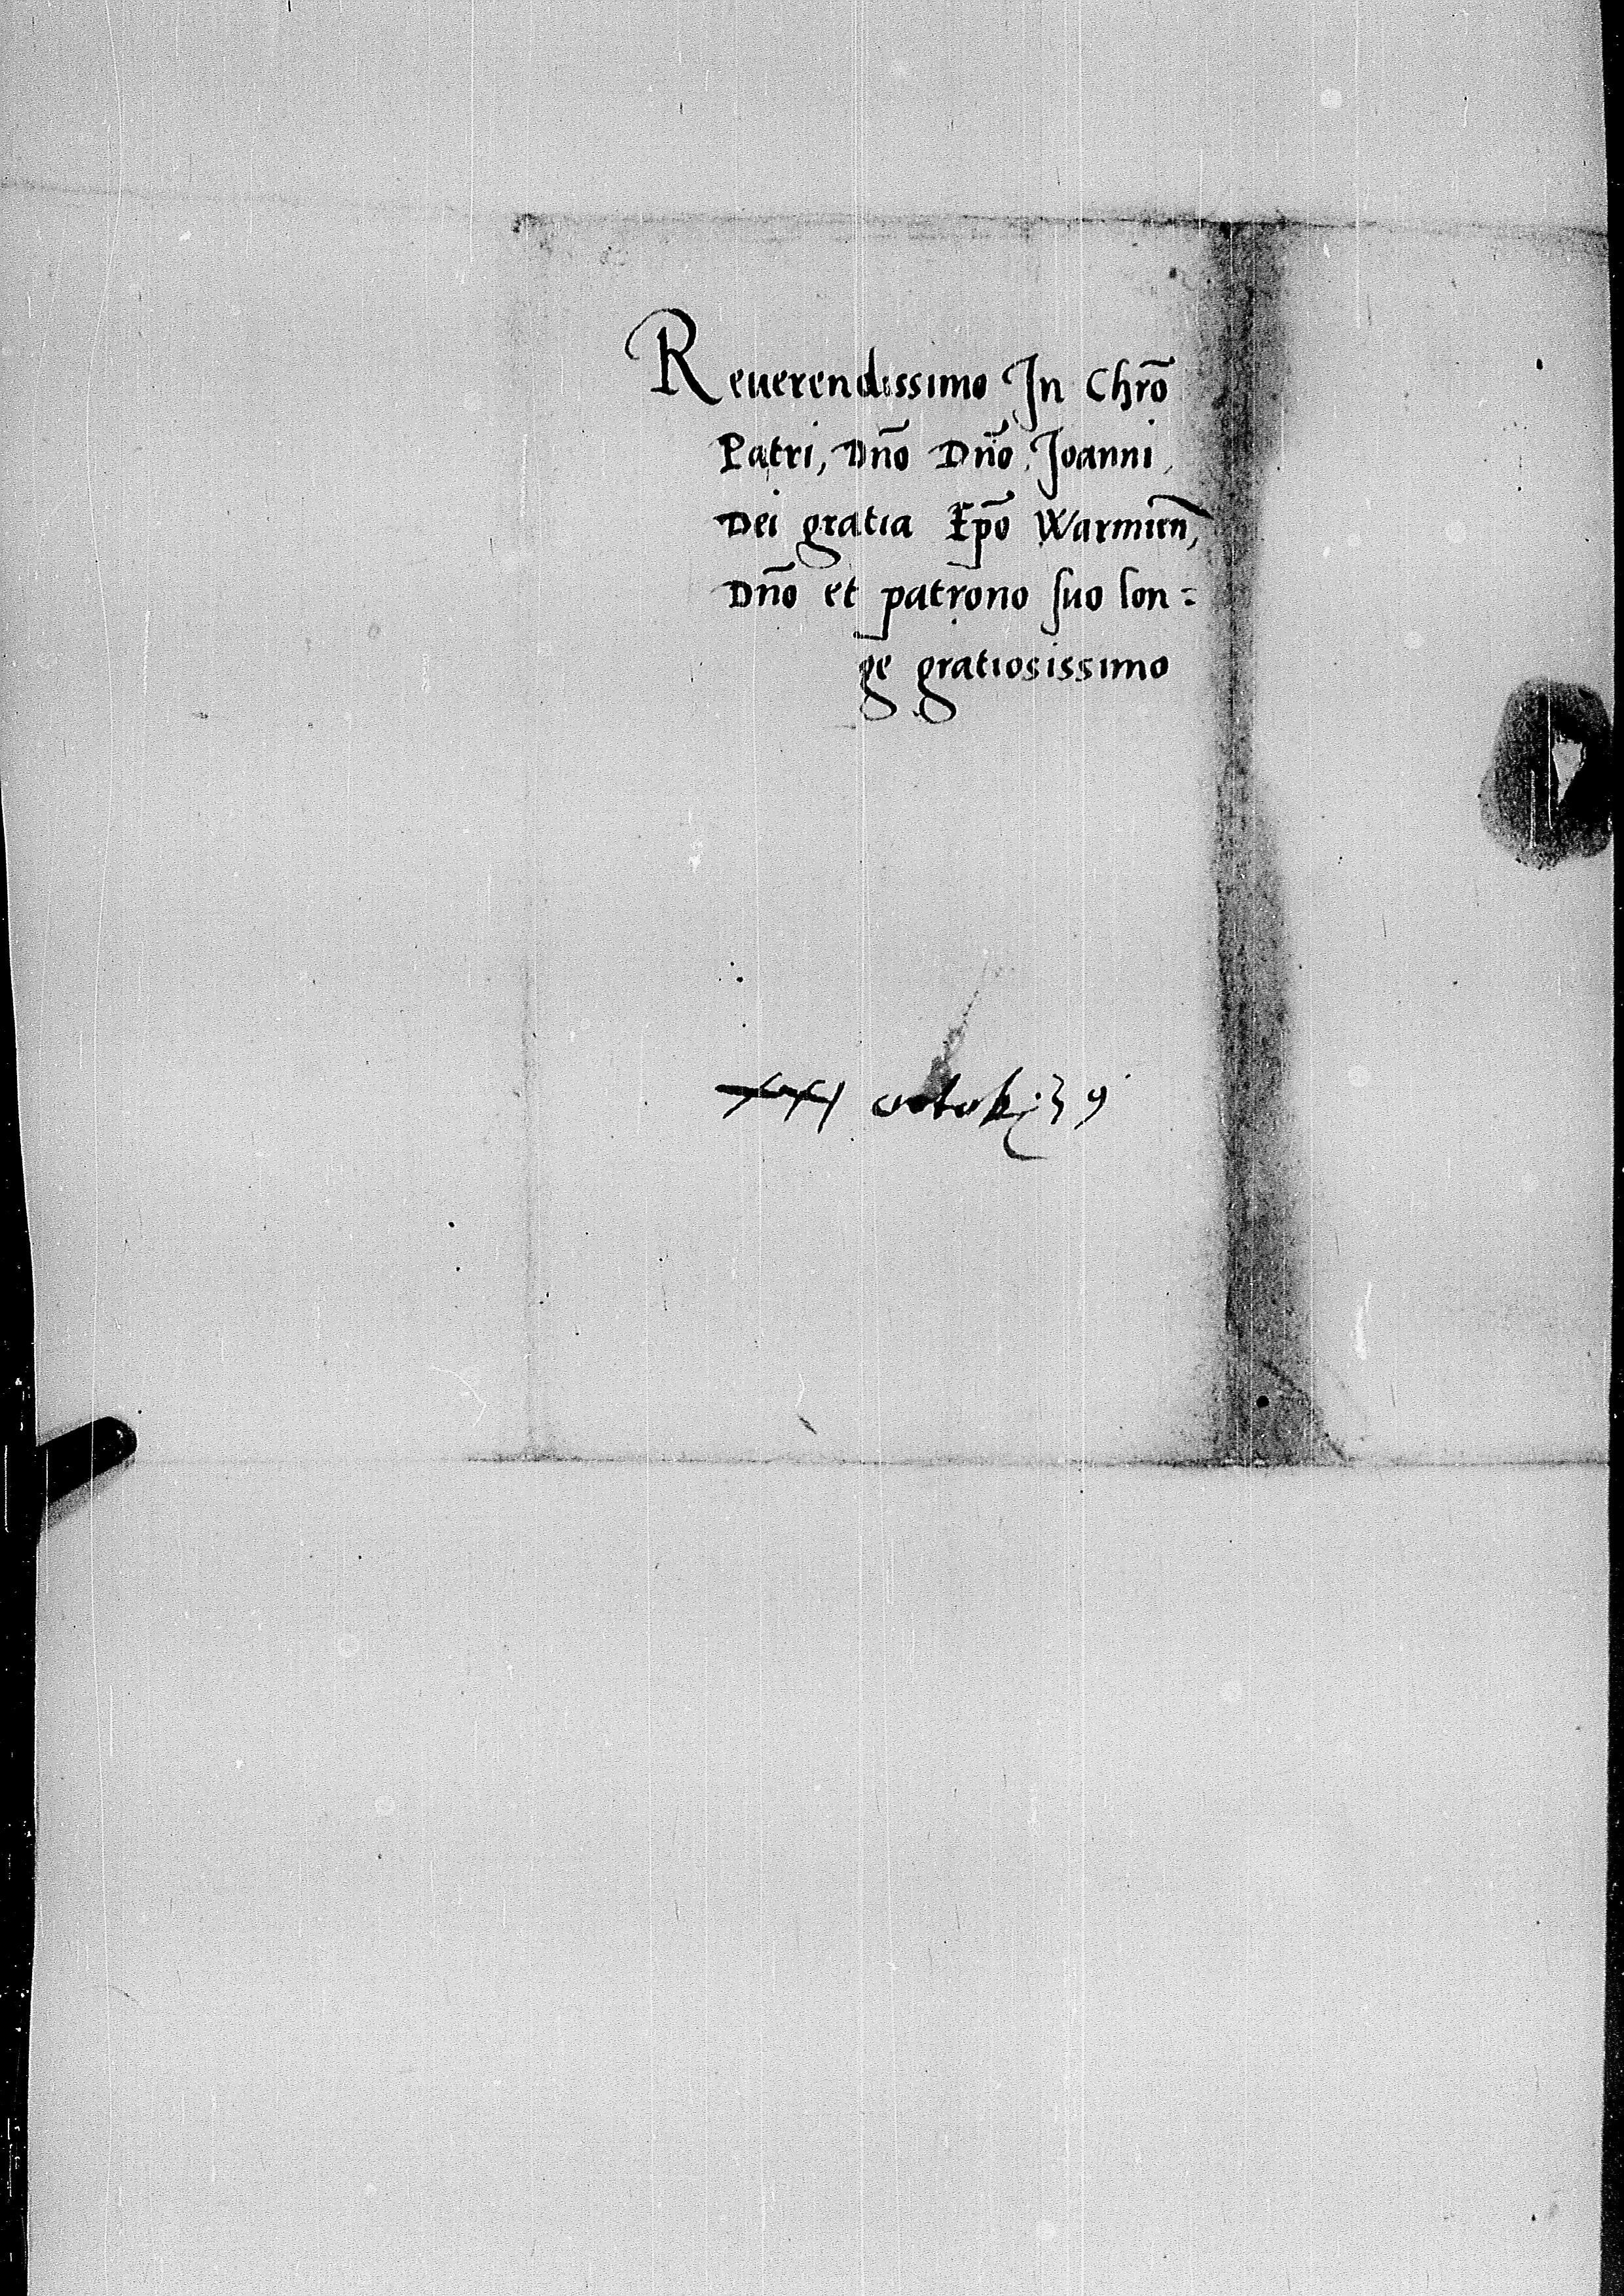 Reuerendissimo In Chrō
Patri, Dn̄o Dn̄o Joanni,
Dei gratia Ep̄o Warmien̄,
Dn̄o et patrono suo lon=
ge gratiosissimo
octob: 39